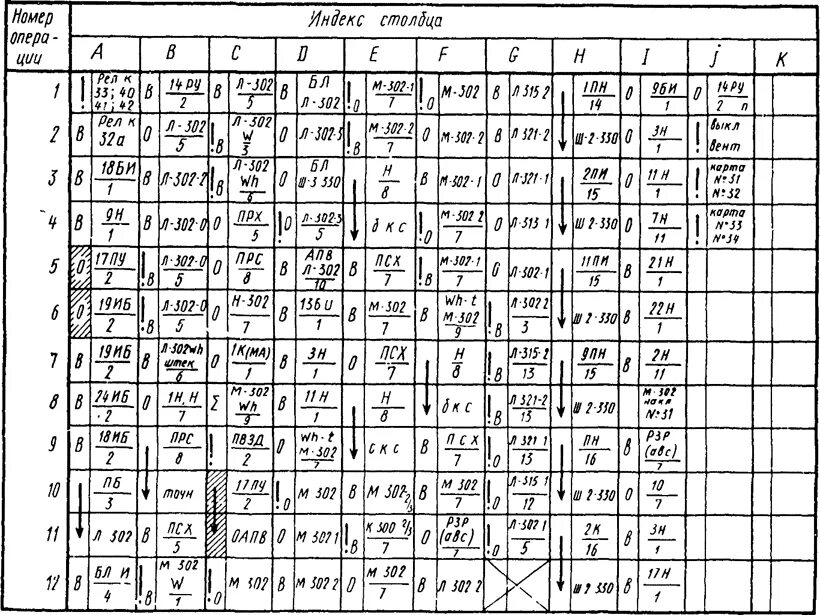 Номер операции Индекс столбца
A B C D E F G H I j K
1 ! Рел к 33; 40 41; 42 B 14РУ/2 B Л-302/5 B БЛ Л-302 !О М-302-1/7 !О М-302 B Л 315-2 1ПН/14 О 9БИ/1 О 14РУ/2 п
2 B Рел к 32а О Л-302/5 !В Л-302 W/3 О Л-302-3 !В М-302-2/7 О М-302-2 B Л 321-2 Ш-2-330 О 3Н/1 ! выкл вент
3 B 18БИ/1 B Л-302-2 !В Л-302 Wh/6 О БЛ Ш-3 330 Н/8 B М-302-1 О Л-321-1 2ПИ/15 О 11Н/1 ! карта №31 №32
4 B 9Н/1 B Л-302-0 О ПРХ/5 !О Л-302-3/5 бкс !О М-302 2/7 О Л-313 1 Ш 2-330 О 7Н/11 ! карта №33 №34
5 О 17ПУ/2 !В Л-302-0/5 О ПРС/8 B АПВ Л-302/10 B ПСХ/7 !В М-302-1/7 О Л-302-1 11ПИ/15 B 21Н/1
6 О 19ИБ/2 !В Л-302-0/5 О Н-302/7 B 13БИ/1 B М-302/7 B Wh-t М-302/9 !В Л-302 2/3 Ш 2-330 B 22Н/1
7 B 19ИБ/2 B Л-302wh штек/6 О 1К(МА)/1 B 3Н/1 О ПСХ/7 Н/8 !В Л-315-2/13 9ПН/15 B 2Н/11
8 B 24ИБ/2 О 1Н,Н/7 Σ М-302 Wh/9 B 11Н/1 Н/8 бкс !О Л 321-2/13 Ш 2-330 М-302 накл №31
9 B 18ИБ/2 ПРС/8 ! ПВЗД/2 О Wh-t М-302/7 скс B ПСХ/7 !О Л 321 1/13 ПН/16 B РЗР (авс)/7
10 ПБ/3 точн 17ПУ/2 !О М 302 B М 302-2/3 B М 302/7 !О Л-315 1/12 Ш 2-330 О 10/7
11 Л 302 B ПСХ/5 ОАПВ О М 302 1 !В К 300 2/3/7 О РЗР (авс)/7 !О Л-302 1/5 2К/16 B 3Н/1
12 B БЛ И/4 !В М 302 W/1 !О М 302 B М 302 2 О М 302/7 B Л 302 2 Ш 2 330 B 17Н/1